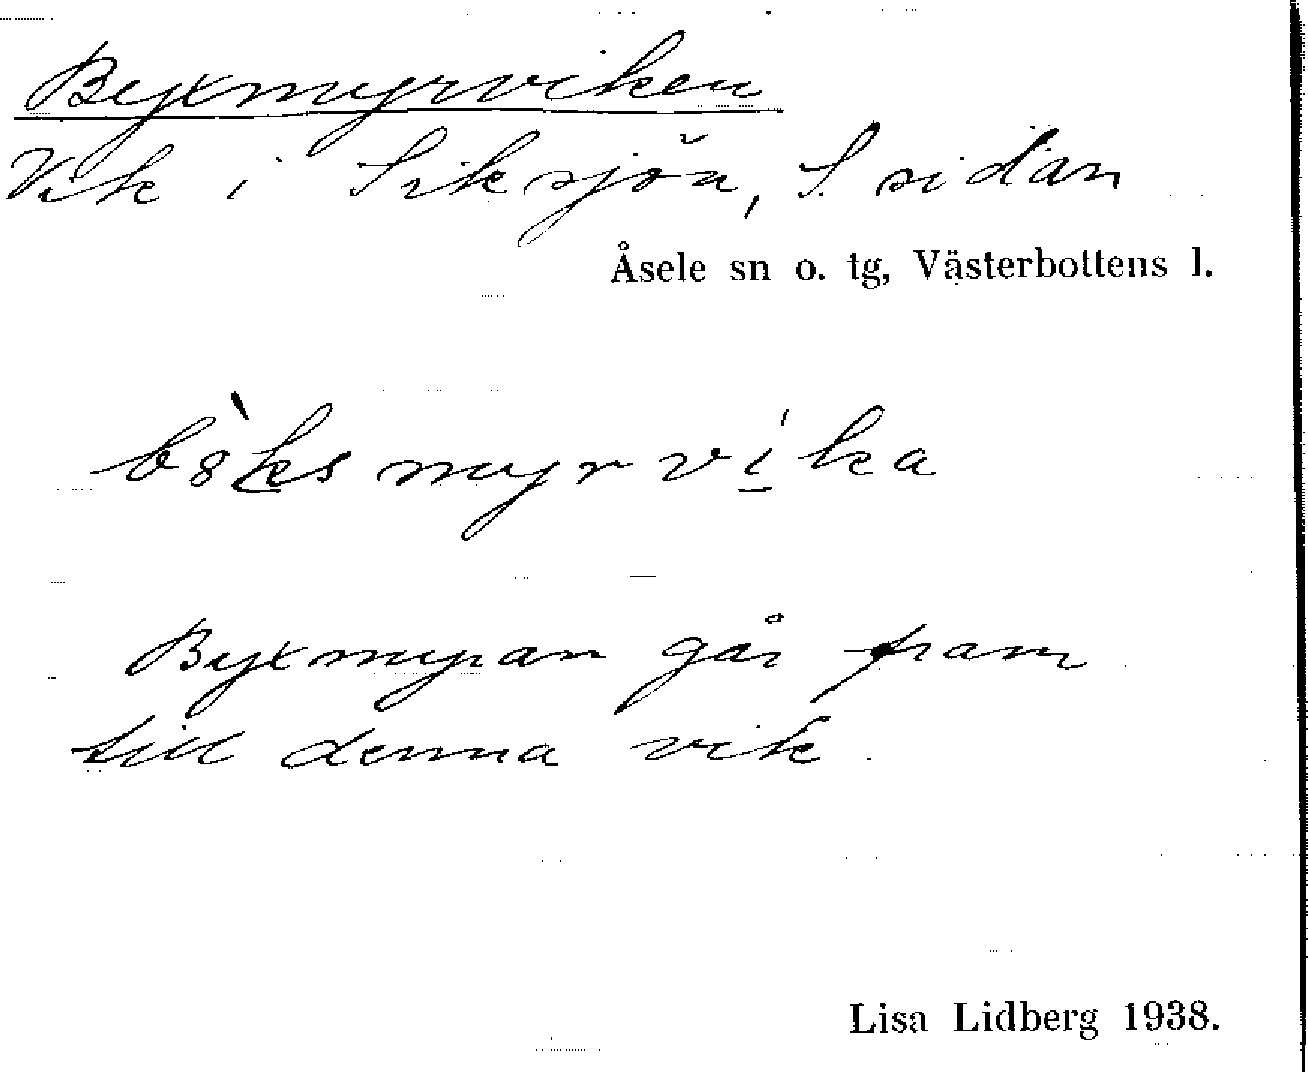 Byxmyrviken
Vik i Siksjön, S. sidan
Åsele sn o. tg, Västerbottens l.
bò̀ksmyrvika
Byxmyran går fram
till denna vik.
Lisa Lidberg 1938.